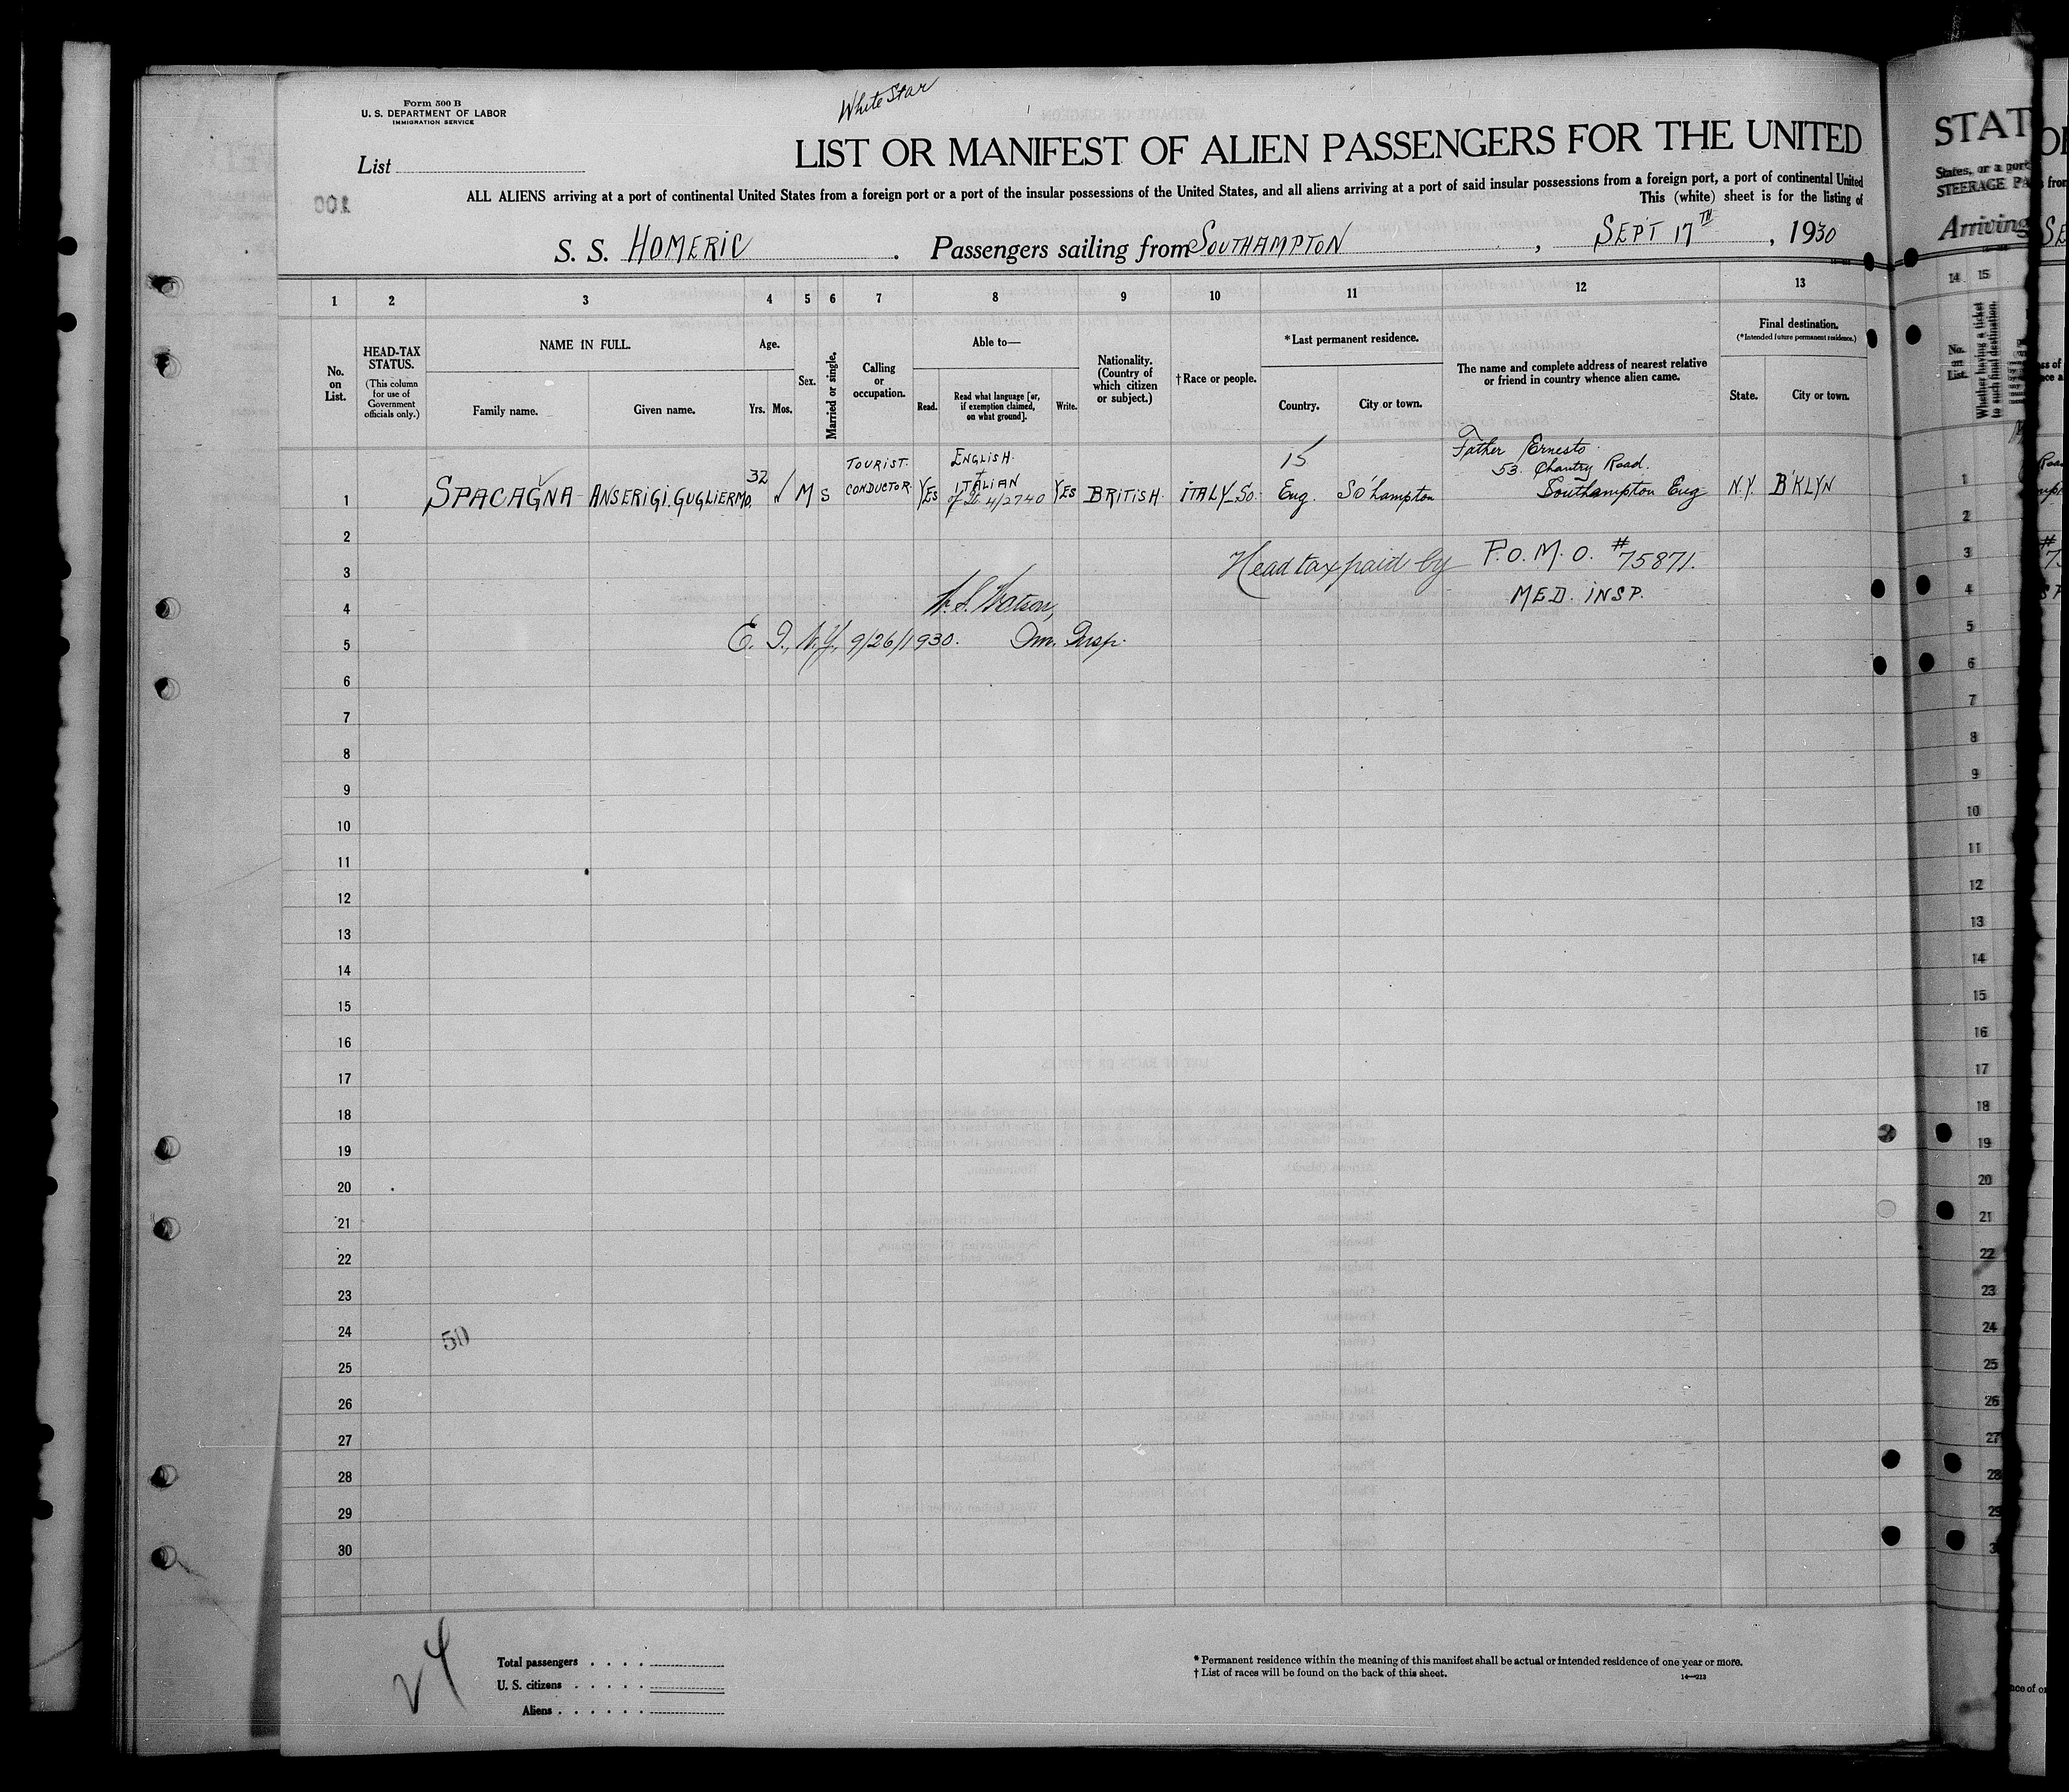 Form 500 B
U. S. DEPARTMENT OF LABOR
IMMIGRATION SERVICE
White Star
List
LIST OR MANIFEST OF ALIEN PASSENGERS FOR THE UNITED
ALL ALIENS arriving at a port of continental United States from a foreign port or a port of the insular possessions of the United States, and all aliens arriving at a port of said insular possessions from a foreign port, a port of continental United
This (white) sheet is for the listing of
S. S. HOMERIC . Passengers sailing from SOUTHAMPTON , SEPT 17TH , 1930
1 2 3 4 5 6 7 8 9 10 11 12 13
No. on List.
HEAD-TAX STATUS.
(This column for use of Government officials only.)
NAME IN FULL.
Family name.
Given name.
Age.
Yrs. Mos.
Sex.
Married or single.
Calling or occupation.
Able to—
Read.
Read what language [or, if exemption claimed, on what ground].
Write.
Nationality. (Country of which citizen or subject.)
† Race or people.
* Last permanent residence.
Country.
City or town.
The name and complete address of nearest relative or friend in country whence alien came.
Final destination.
(*Intended future permanent residence.)
State.
City or town.
1 SPACAGNA ANSERIGI. GUGLIERMO. 32 M S TOURIST. CONDUCTOR. YES ENGLISH. + ITALIAN 4/2740 YES BRITISH. ITALY SO. 15 Eng. So'hampton Father Ernesto 53. Chantry Road. Southampton Eng N.Y. B'KLYN
2
3 Head tax paid by P.O.M.O. #75871.
4 W. S. Watson, MED. INSP.
5 E. I., N.Y., 9/26/1930. Im. Insp.
6
7
8
9
10
11
12
13
14
15
16
17
18
19
20
21
22
23
24 50
25
26
27
28
29
30
24
Total passengers
U. S. citizens
Aliens
* Permanent residence within the meaning of this manifest shall be actual or intended residence of one year or more.
† List of races will be found on the back of this sheet.
14—213
STAT
States, or a port
STEERAGE PA
Arriving
14 15
No. on List.
Whether having a ticket to such final destination.
1
2
3
4
5
6
7
8
9
10
11
12
13
14
15
16
17
18
19
20
21
22
23
24
25
26
27
28
29